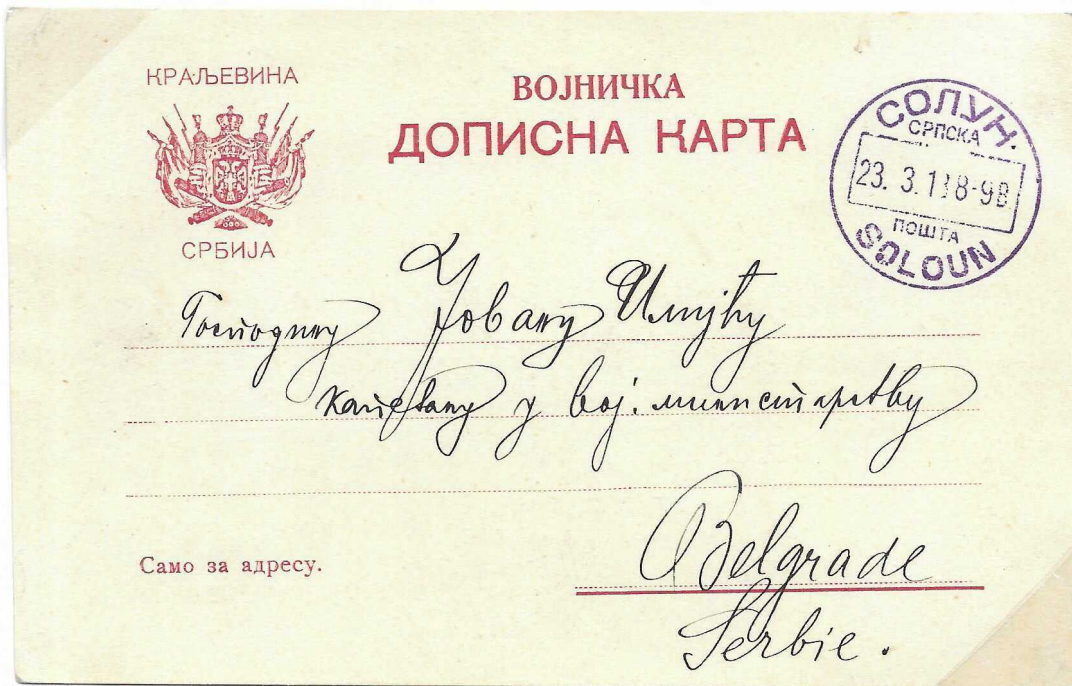 КРАЉЕВИНА
СРБИЈА
ВОЈНИЧКА
ДОПИСНА КАРТА
СОЛУН.
СРПСКА
23. 3. 13 8-9В
ПОШТА
SOLOUN
Господину Јовану Илијћу
капетану у вој. министарству
Belgrade
Serbie.
Само за адресу.